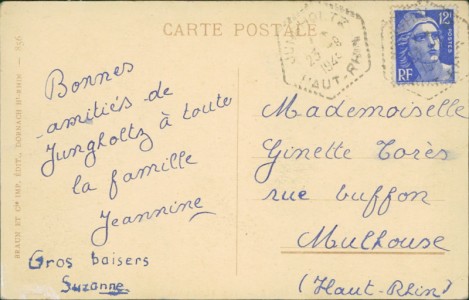 CARTE POSTALE
JUNGHOLTZ
23 -8
HAUT-RHIN
12F
POSTES
RF
BRAUN ET Cie IMP. EDIT., DORNACH Ht-RHIN
Bonnes
amitiés de
Jungholtz à toute
la famille
Jeannine
Gros baisers
Suzanne
Mademoiselle
Ginette Torès
rue buffon
Mulhouse
(Haut-Rhin)